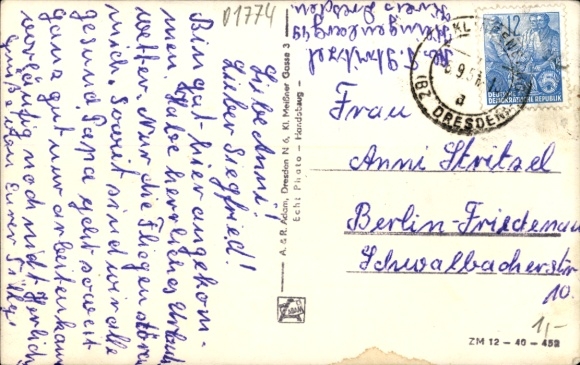 D1774
Liebe Anni!
Lieber Siegfried!
Bin gut hier angekom-
men. Habe herrliches Urlaub
wetter. Nur die Fliegen stören
mich. Soweit sind wir alle
gesund Papa geht soweit
ganz gut nur arbeiten kann
vorläufig noch nicht. Herzlich
Grüße von Eurer
Klingenberg
Kreis Dresden.
A. & R. Adam, Dresden N 6, Kl. Meißner Gasse 3
Echt Photo - Handabzug
12
DEUTSCHE
DEMOKRATISCHE REPUBLIK
(BZ DRESDEN)
a
Frau
Anni Stritzel
Berlin-Friedenau
Schwalbacherstr
10.
1,-
ZM 12 - 40 - 452